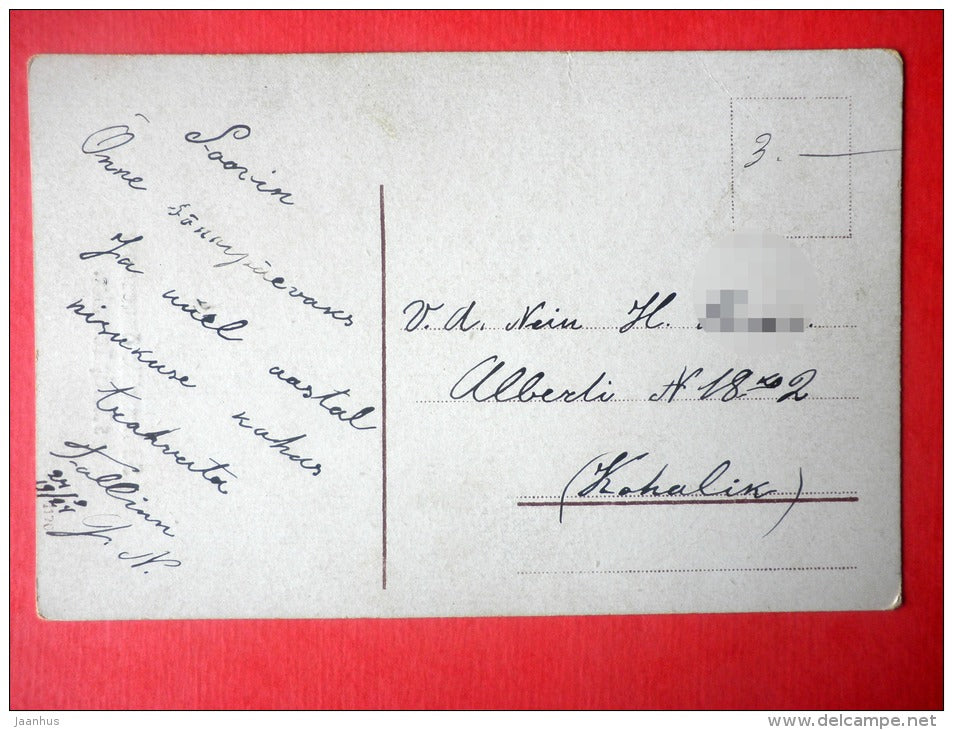 Soovin
Õnne sünnypäevaks
Ja uuel aastal
nisukuse kahas
trahvata
Tallinn
J. N.
3. —
V. A. Nein H.
Alberti N 18 2
(Kohalik)
Jaanhus
www.delcampe.net